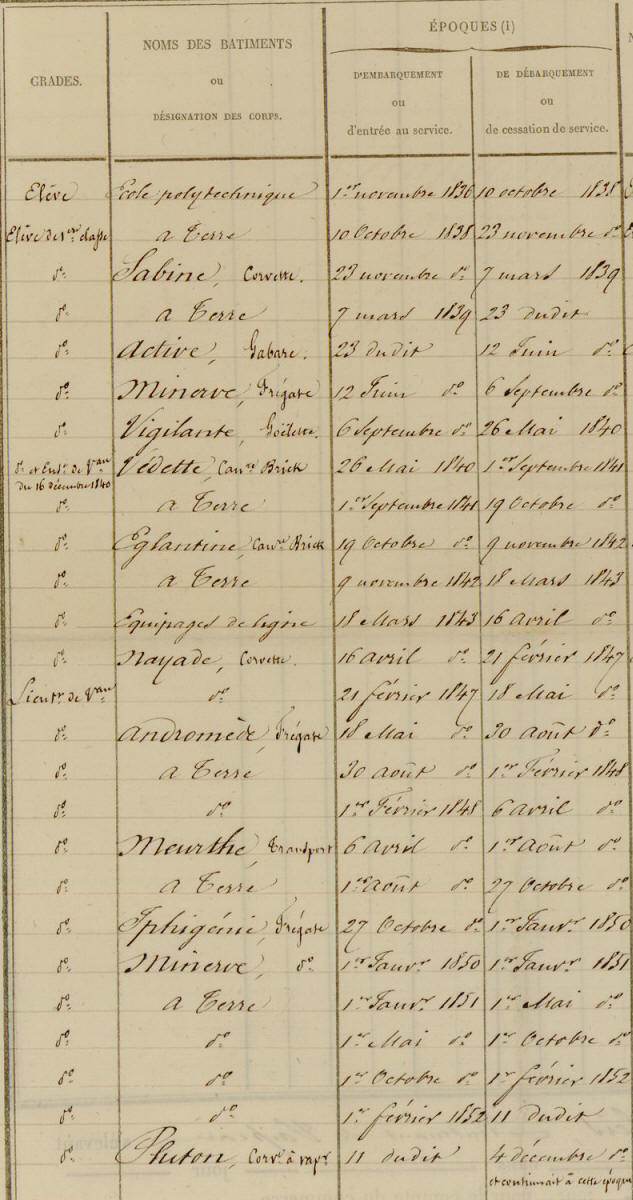 GRADES. NOMS DES BATIMENTS ou DÉSIGNATION DES CORPS. ÉPOQUES (1)
D'EMBARQUEMENT ou d'entrée au service. DE DÉBARQUEMENT ou de cessation de service.
Elève Ecole polytechnique 1er novembre 1836 10 octobre 1838
Elève de 1ère classe a Terre 10 Octobre 1838 23 novembre do
do Sabine, Corvette. 23 novembre do 7 mars 1839
do a Terre 7 mars 1839 23 dudit
do Active, Gabare. 23 dudit 12 Juin do
do Minerve, Frégate 12 Juin do 6 Septembre do
do Vigilante, Goëlette. 6 Septembre do 26 Mai 1840
do et Ens. de Veau du 16 décembre 1840 Védette, Canre Brick 26 Mai 1840 1er Septembre 1841
do a Terre 1er Septembre 1841 19 Octobre do
do Eglantine, Canre Brick 19 Octobre do 9 novembre 1842
do a Terre 9 novembre 1842 18 Mars 1843
do Equipages de ligne 18 Mars 1843 16 avril do
do Nayade, Corvette. 16 avril do 21 février 1847
Lieutt de Veau do 21 février 1847 18 Mai do
do Andromède, Frégate 18 Mai do 30 août do
do a Terre 30 août do 1er Février 1848
do do 1er Février 1848 6 avril do
do Meurthe, Transport 6 avril do 1er Août do
do a Terre 1er Août do 27 Octobre do
do Iphigénie, Frégate 27 Octobre do 1er Janvr 1850
do Minerve, do 1er Janvr 1850 1er Janvr 1851
do a Terre 1er Janvr 1851 1er Mai do
do do 1er Mai do 1er Octobre do
do do 1er Octobre do 1er février 1852
do do 1er février 1852 11 dudit
do Pluton, Corve à vapr 11 dudit 4 décembre do
et continuait à cette époque